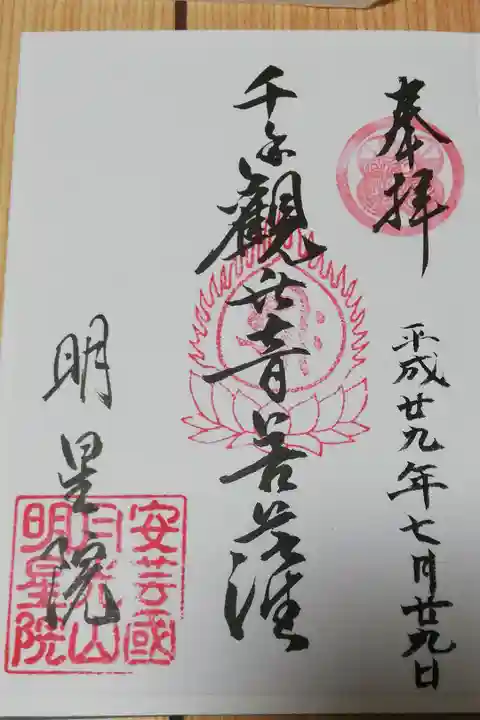 奉拝
平成廿九年七月廿九日
千手観世音菩薩
明星院
安芸國
日光山
明星院